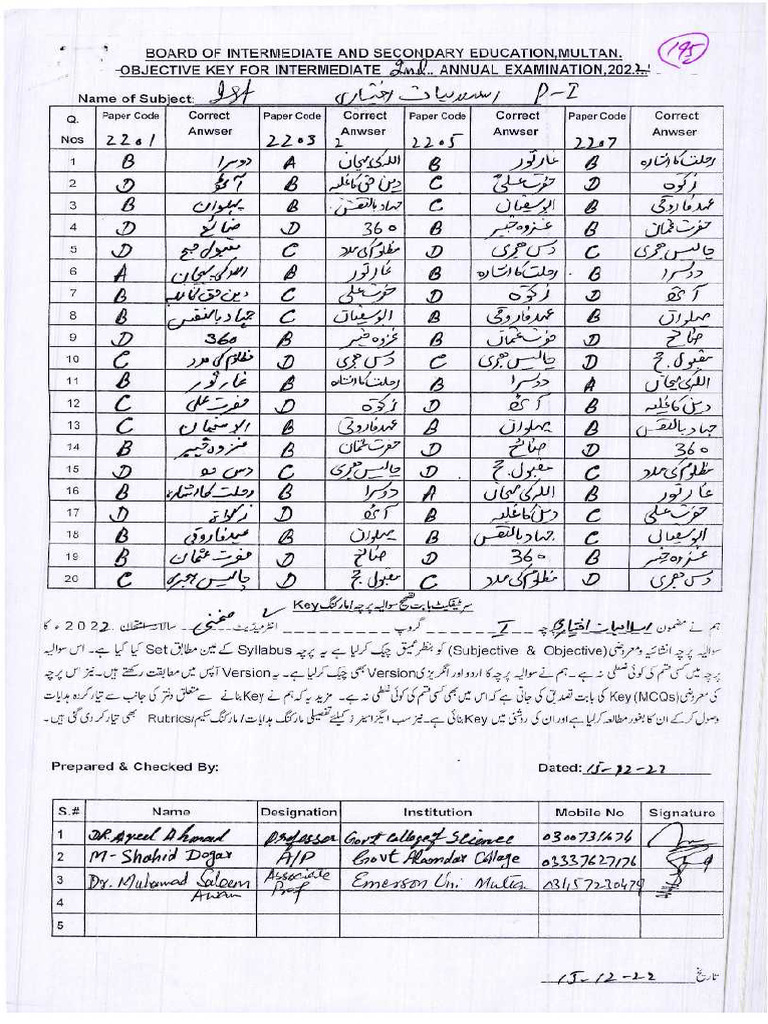 195
BOARD OF INTERMEDIATE AND SECONDARY EDUCATION,MULTAN.
OBJECTIVE KEY FOR INTERMEDIATE 2nd.. ANNUAL EXAMINATION,2022
Name of Subject: اسلامیات اختیاری P-I
Q. Nos Paper Code 2201 Correct Anwser Paper Code 2203 Correct Anwser Paper Code 2205 Correct Anwser Paper Code 2207 Correct Anwser
1 B دوسرا A اللہ کی پہچان B غار ثور B رحلت کا اشارہ
2 D B دین حق کا غلبہ C حضرت علیؓ D زکوٰۃ
3 B پہلوان B جہاد بالنفس C ابوسفیان B عہد فاروقی
4 D ضائع D 360 B غزوہ خیبر B حضرت عثمان
5 D مقبول حج C مظلوم کی مدد D دس ہجری C چالیس ہجری
6 A اللہ کی پہچان B غار ثور B رحلت کا اشارہ B دوسرا
7 B دین حق کا غلبہ C حضرت علی D زکوٰۃ D
8 B جہاد بالنفس C ابوسفیان B عہد فاروقی B پہلوان
9 D 360 B غزوہ خیبر B حضرت عثمان D ضائع
10 C مظلوم کی مدد D دس ہجری C چالیس ہجری D مقبول حج
11 B غار ثور B رحلت کا اشارہ B دوسرا A اللہ کی پہچان
12 C حضرت علی D زکوٰۃ D B دین کا غلبہ
13 C B عہد فاروقی B پہلوان B جہاد بالنفس
14 B غزوہ خیبر B حضرت عثمان D ضائع D 360
15 D C چالیس ہجری D مقبول حج C مظلوم کی مدد
16 B رحلت کا اشارہ B دوسرا A اللہ کی پہچان B غار ثور
17 D زکواتہ D B دین کا غلبہ C حضرت علی
18 B عہد فاروقی B پہلوان B جہاد بالنفس C ابوسفیان
19 B حضرت عثمان D ضائع D 360 B غزوہ خیبر
20 C چالیس ہجری D مقبول حج C مظلوم کی مدد D دس ہجری
سرٹیفکیٹ بابت تصحیح سوالیہ پرچہ/مارکنگ Key
ہم نے مضمون اسلامیات اختیاری پرچہ I گروپ انٹرمیڈیٹ ضمنی سالانہ امتحان 2022ء کا
سوالیہ پرچہ انشائیہ و معروضی (Subjective & Objective) کو بنظر عمیق چیک کرلیا ہے یہ پرچہ Syllabus کے عین مطابق Set کیا گیا ہے۔ اس سوالیہ
پرچہ میں کسی قسم کی کوئی غلطی نہ ہے۔ ہم نے سوالیہ پرچہ کا اردو اور انگریزی Version بھی چیک کرلیا ہے۔ یہ Version آپس میں مطابقت رکھتے ہیں۔ نیز اس پرچہ
کی معروضی (MCQs) Key کی بابت تصدیق کی جاتی ہے کہ اس میں بھی کسی قسم کی کوئی غلطی نہ ہے۔ مزید یہ کہ ہم نے Key بنانے سے متعلق دفتر کی جانب سے تیار کردہ ہدایات
وصول کرکے ان کا بغور مطالعہ کرلیا ہے اور ان کی روشنی میں Key بنائی ہے۔ نیز سب ایگزامینرز کیلئے تفصیلی مارکنگ ہدایات/مارکنگ سکیم/Rubrics بھی تیار کر دی گئی ہیں۔
Prepared & Checked By: Dated: 15-12-22
S.# Name Designation Institution Mobile No Signature
1 Ahmad Professor Govt College of Science 0300731676
2 M-Shahid Dogar A/P Govt Alamdar College 03337627176
3 Dr. Muhamad Saleem Awan Associate Prof Emerson Uni Multan 03457230479
4
5
15-12-22 تاریخ